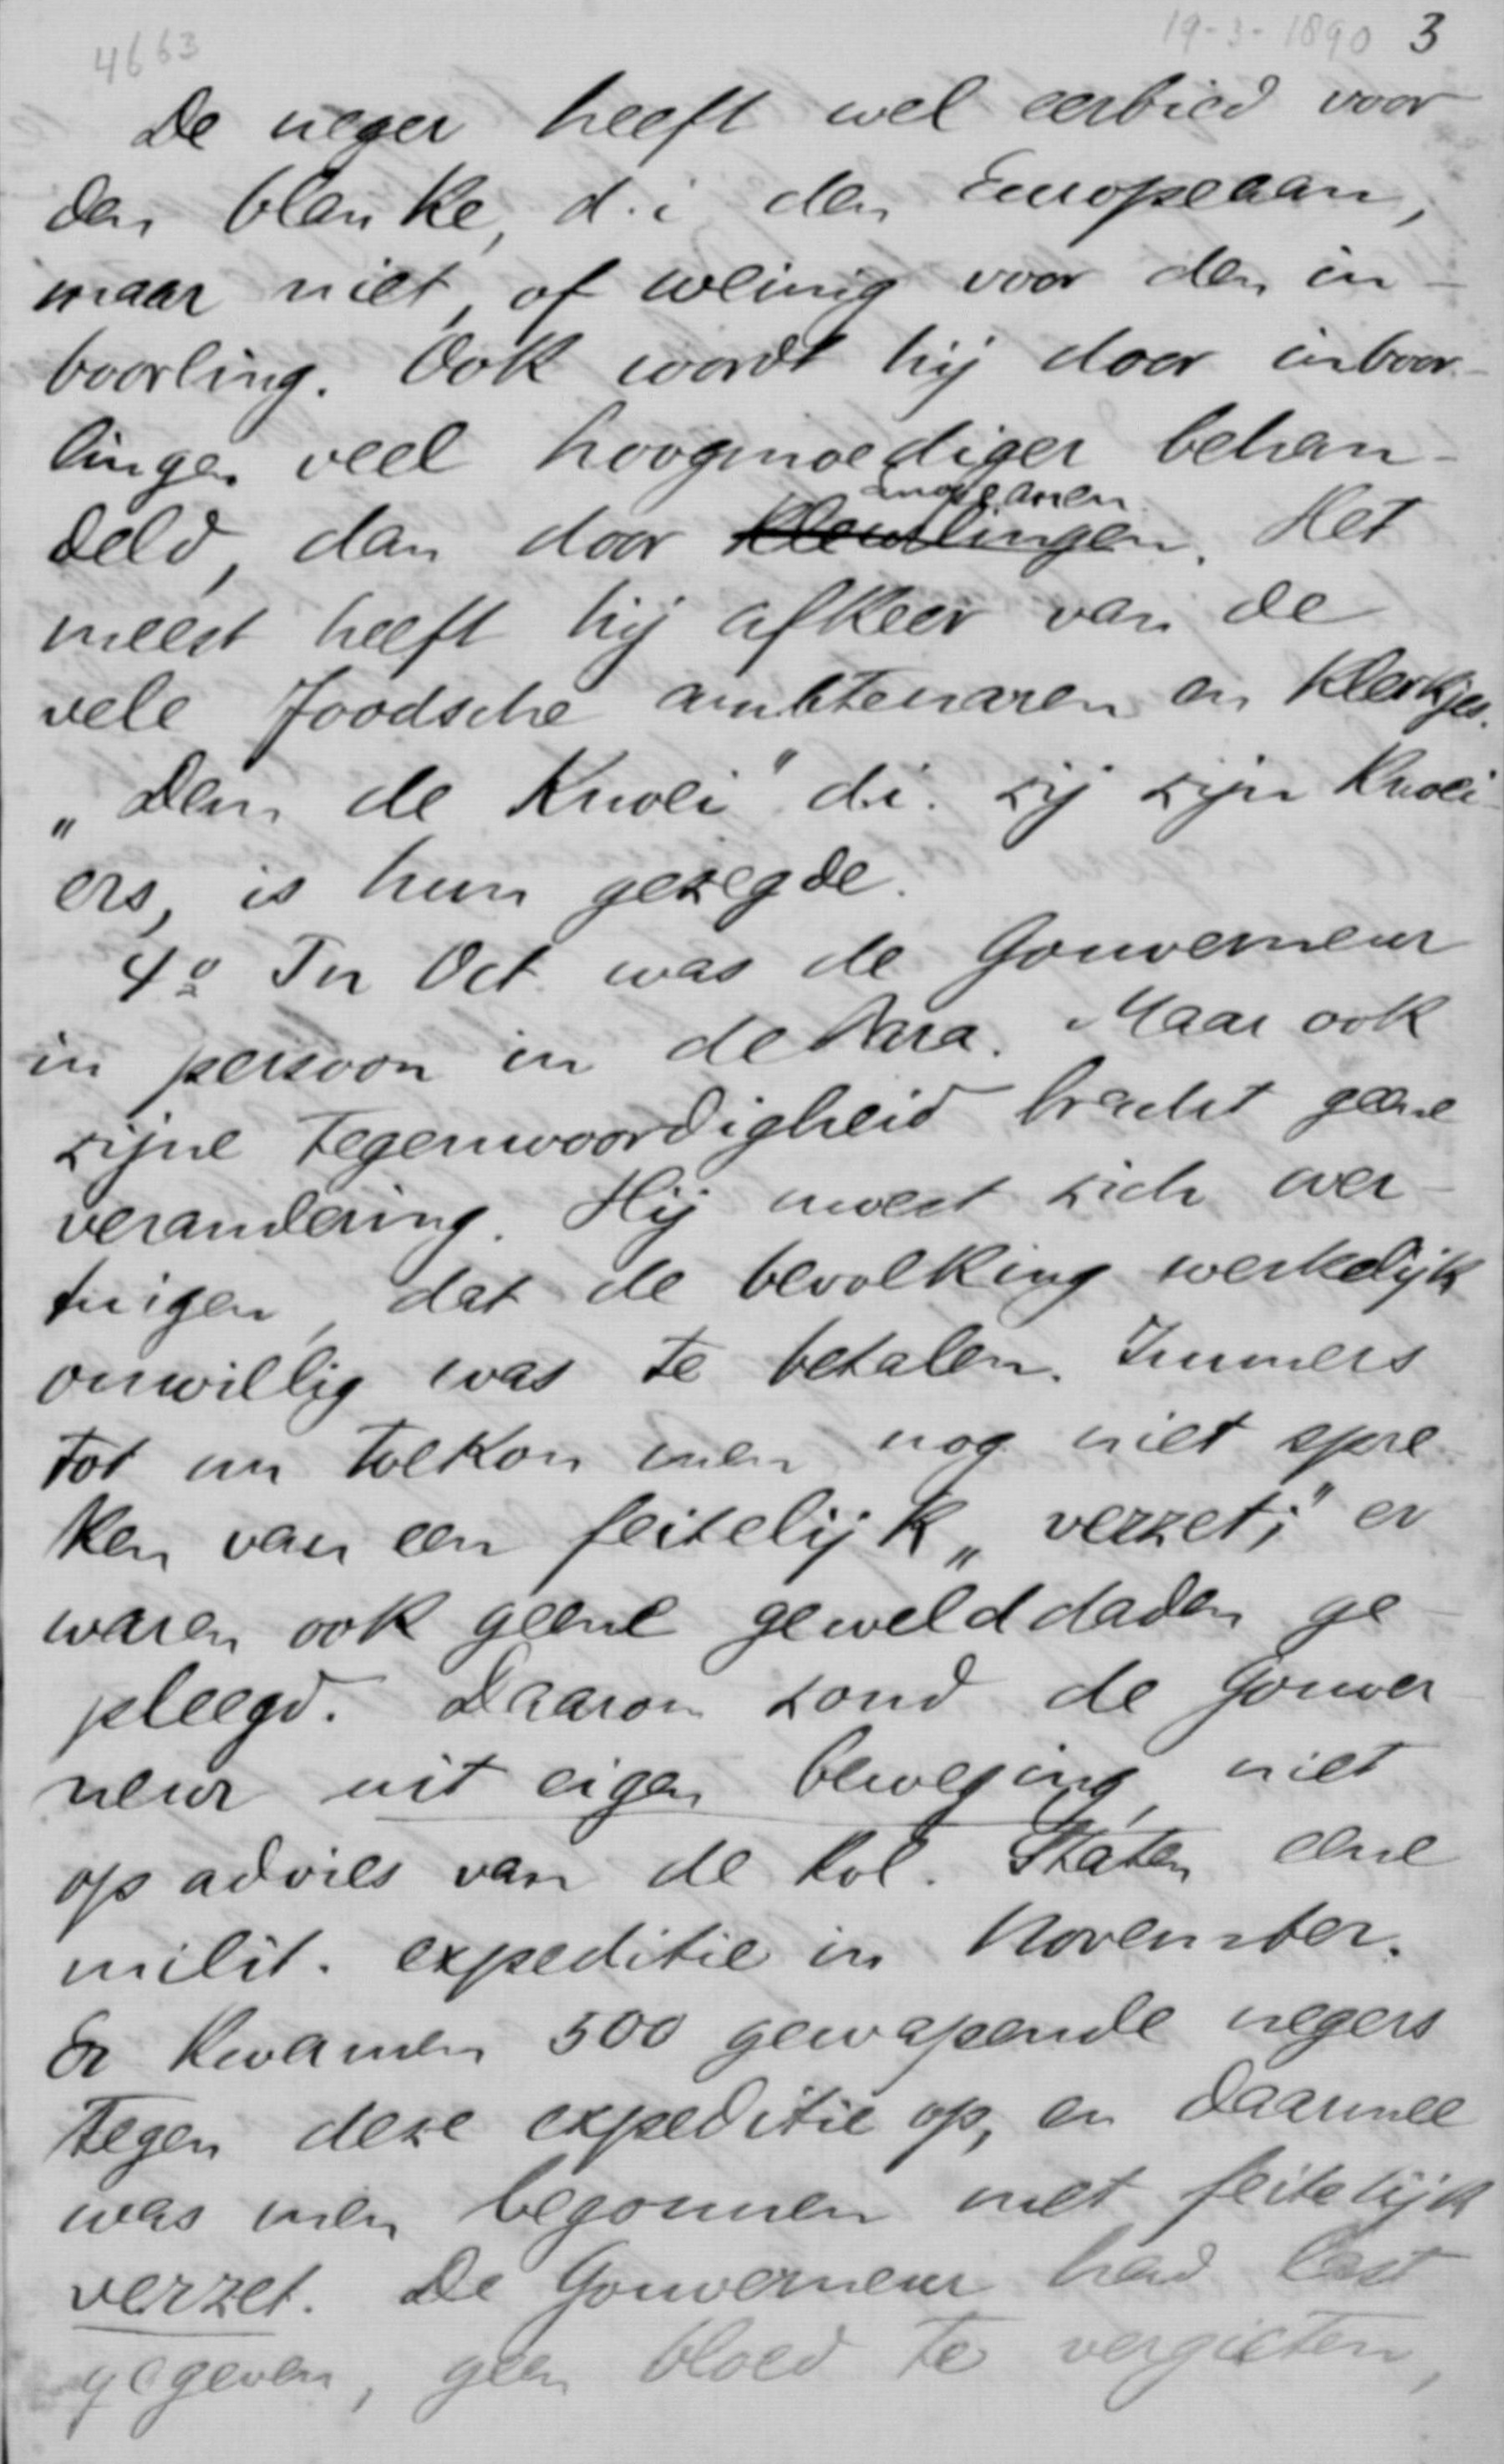 4663
19-3-1890 3
De neger heeft wel eerbied voor
den blanke, d.i den Europeaan,
maar niet, of weinig voor den in-
boorling. Ook wordt hij door inboor-
lingen veel hoogmoediger behan-
Europeanen
deld, dan door kleurlingen. Het
meest heeft hij afkeer van de
vele Joodsche ambtenaren en klerkjes.
„Dem de Knoei" d.i. zij zijn knoei-
ers, is hun gezegde.
4o In Oct. was de Gouverneur
in persoon in de Para. Maar ook
zijne tegenwoordigheid bracht geene
verandering. Hij moest zich over-
tuigen, dat de bevolking werkelijk
onwillig was te betalen. Immers
tot nu toe kon men nog niet spre-
ken van een feitelijk „verzet;" er
waren ook geene gewelddaden ge-
pleegd. Daarom zond de Gouver-
neur uit eigen beweging, niet
op advies van de Kol. Staten eene
milit. expeditie in November.
Er kwamen 500 gewapende negers
tegen deze expeditie op, en daarmee
was men begonnen met feitelijk
verzet. De Gouverneur had last
gegeven, geen bloed te vergieten,